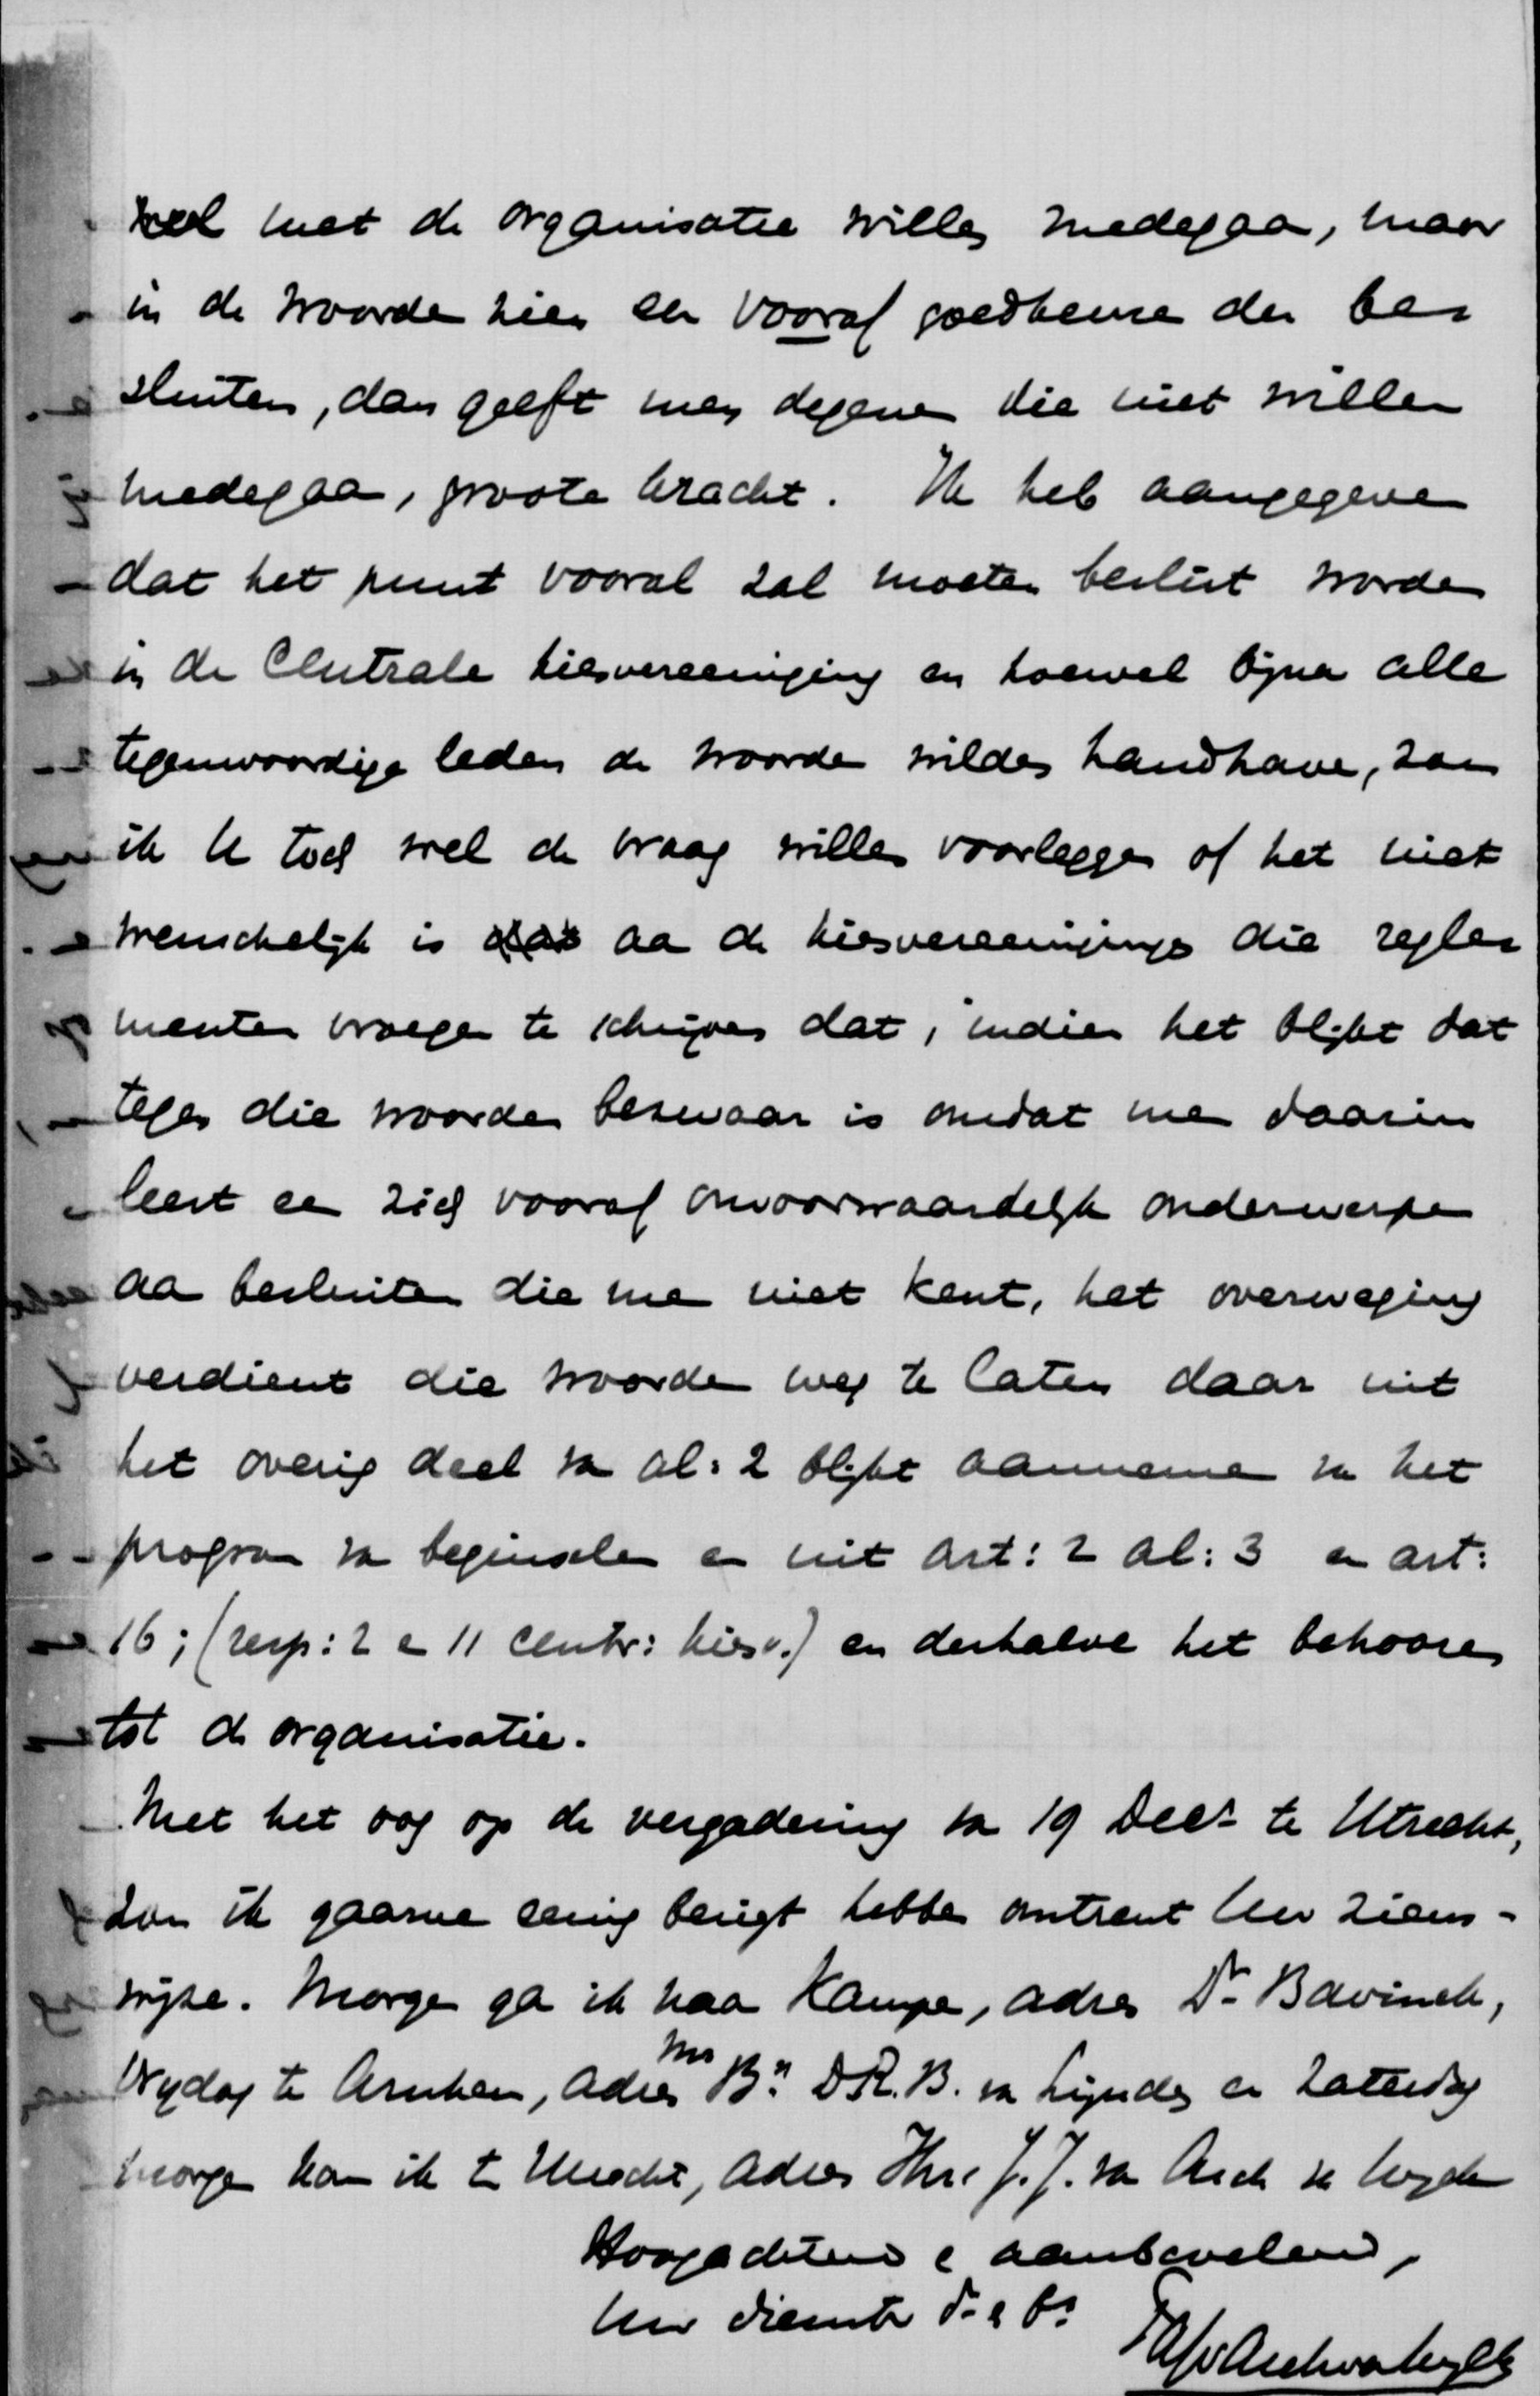 wel met de organisatie willen medegaan, maar
in de woorden zien een vooraf goedkeuren der be=
sluiten, dan geeft men degenen die niet willen
medegaan, groote kracht. Ik heb aangegeven
dat het punt vooral zal moeten beslist worden
in de Centrale kiesvereeniging en hoewel bijna alle
tegenwoordige leden de woorden wilden handhaven, zou
ik U toch wel de vraag willen voorleggen of het niet
wenschelijk is aan de kiesvereenigingen die regle=
menten vroegen te schrijven dat, indien het blijkt dat
tegen die woorden bezwaar is omdat men daarin
leest een zich vooraf onvoorwaardelijk onderwerpen
aan besluiten die men niet kent, het overweging
verdient die woorden weg te laten daar uit
het overig deel van al: 2 blijkt aannemen van het
program van beginselen en uit art: 2 al: 3 en art:
16; (resp: 2 en 11 centr: kiesv.) en derhalve het behooren
tot de organisatie.
Met het oog op de vergadering van 19 Decr te Utrecht,
zou ik gaarne eenig berigt hebben omtrent Uw ziens-
wijze. Morgen ga ik naar Kampen, adres Dr Bavinck,
Vrydag te Arnhem, adres Mr Bn D.R.B. van Lijnden en Zaterdag
morgen kom ik te Utrecht, adres Jhr J.J. van Asch van Wyck
Hoogachtend en aanbevelend,
Uw dienstv. dr en br
van Asch van Wyck